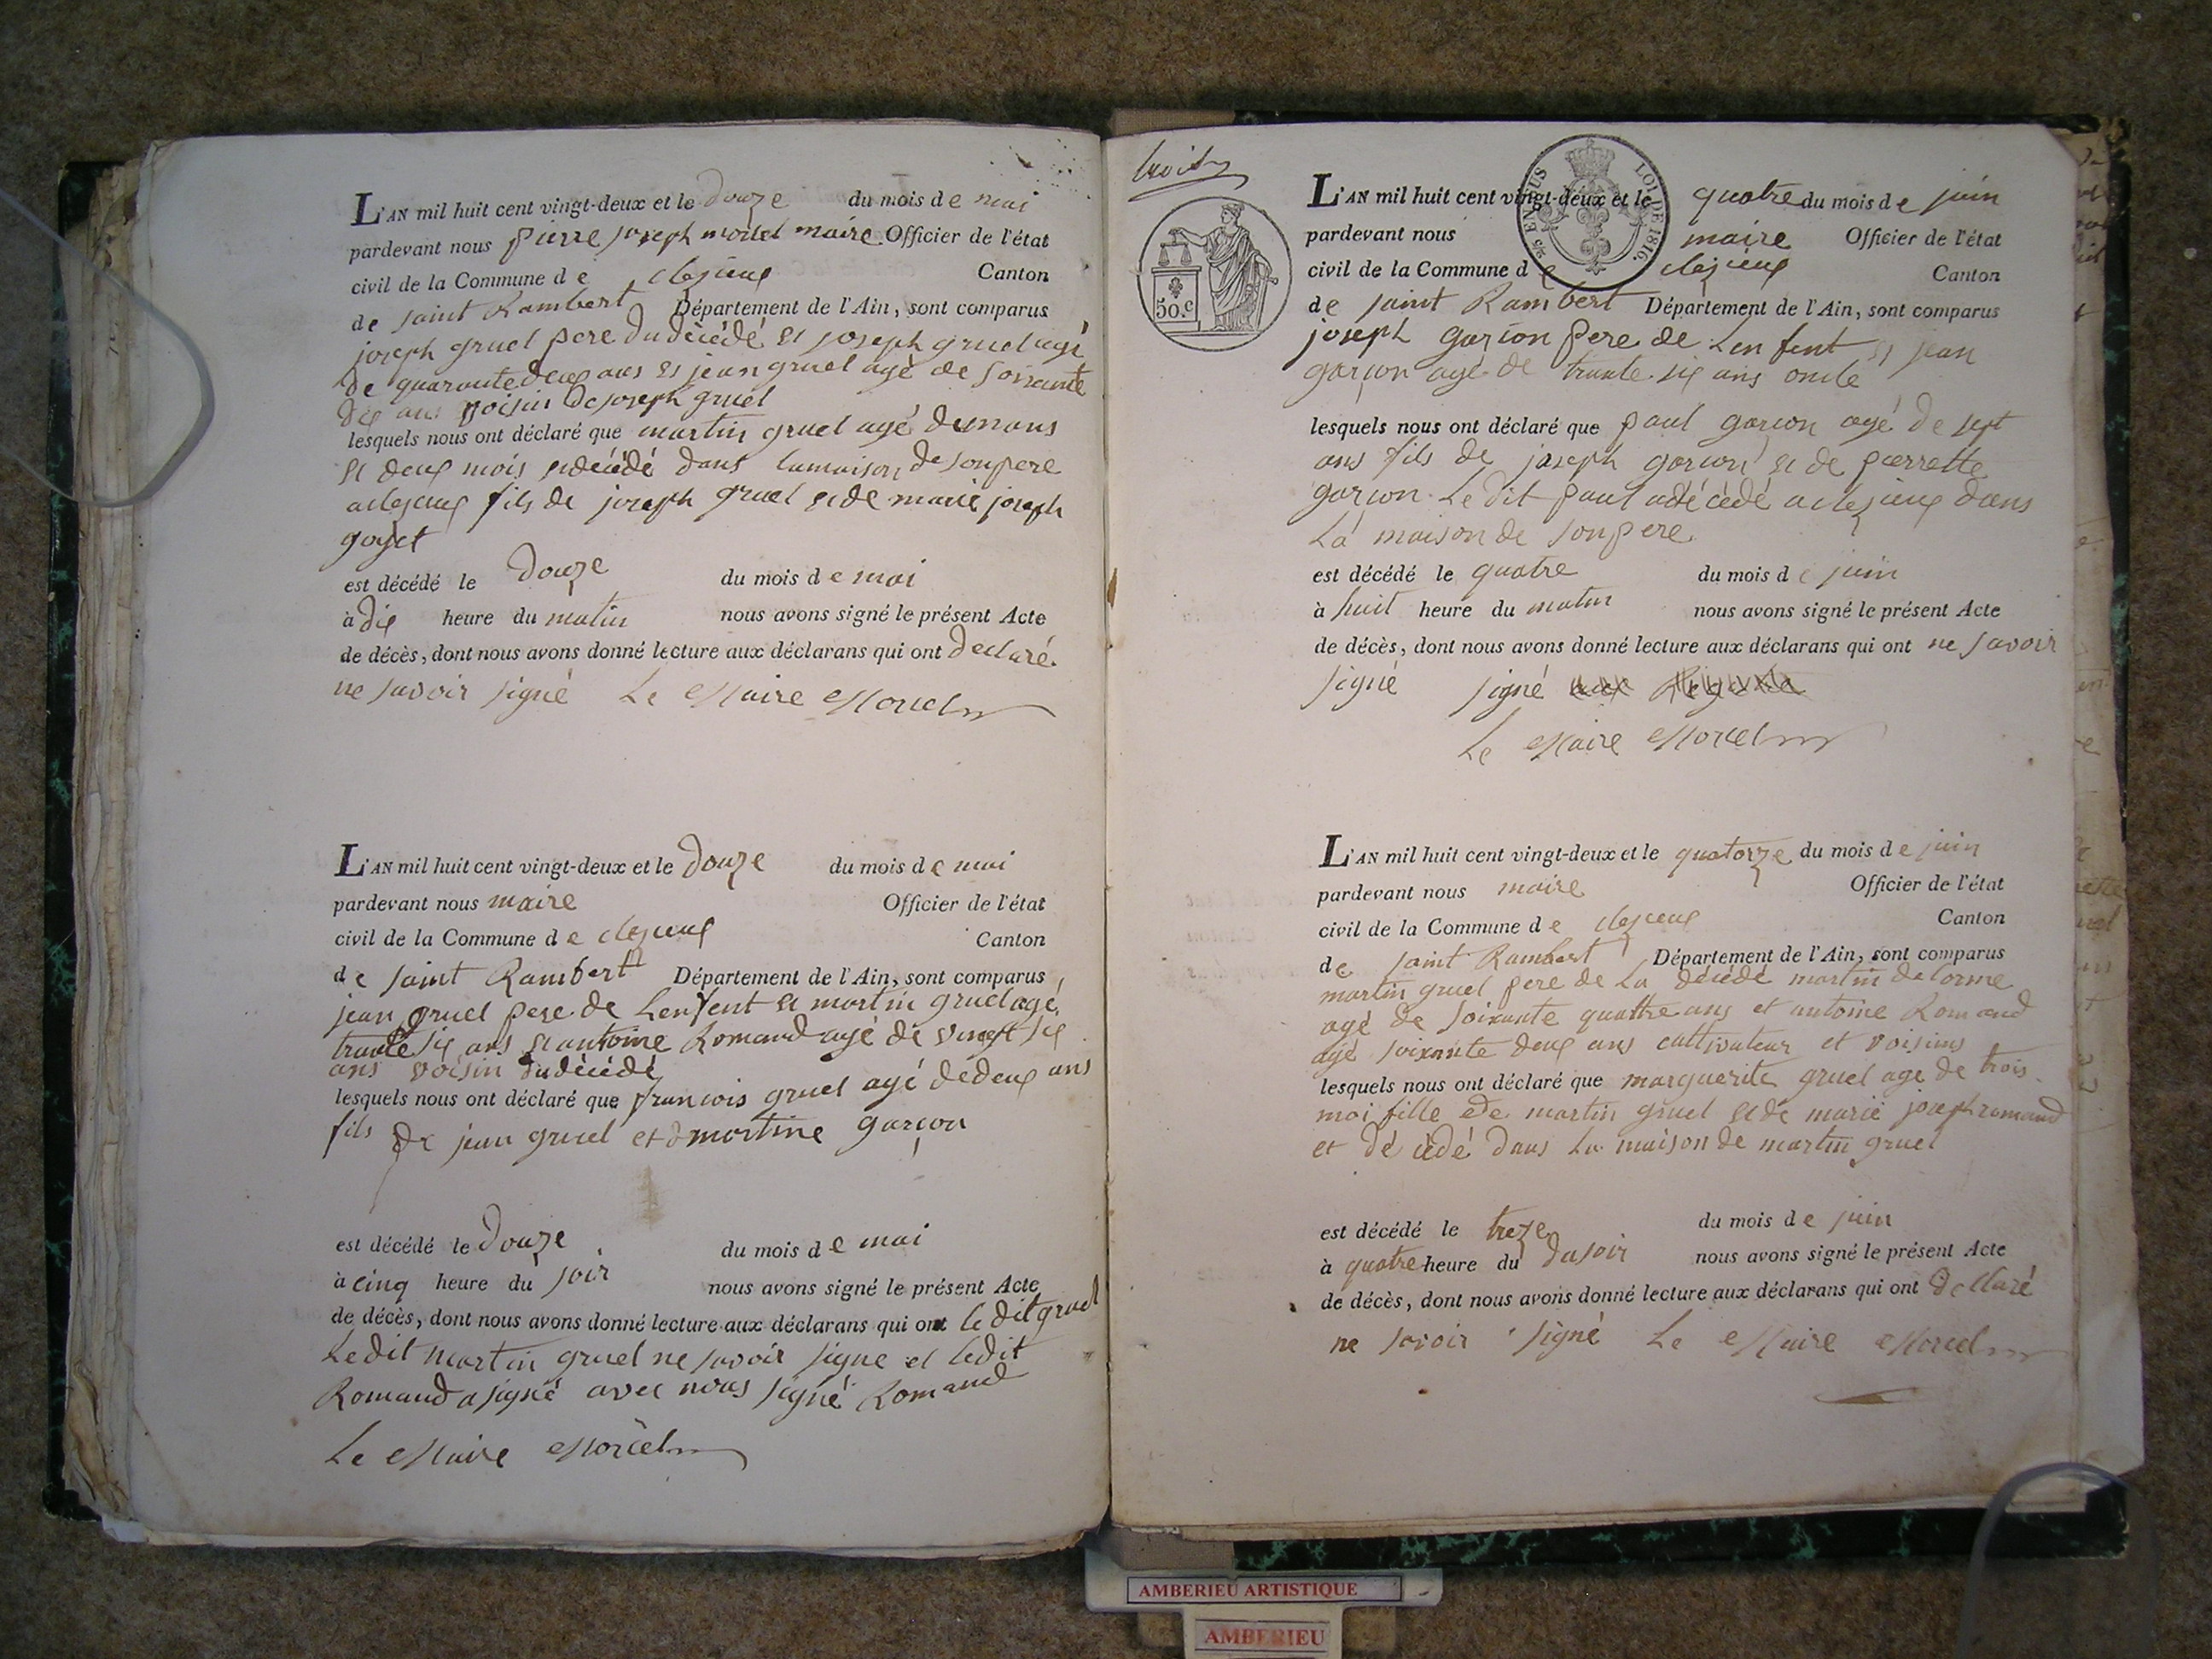 L'AN mil huit cent vingt-deux et le douze du mois de mai
pardevant nous pierre joseph morel maire Officier de l'état
civil de la Commune de clezieux Canton
de saint Rambert Département de l'Ain, sont comparus
joseph gruel pere du décédé et joseph gruel agé
de quarante deux ans et jean gruel agé de soixante
dix ans voisin de joseph gruel
lesquels nous ont déclaré que martin gruel agé dunans
et deux mois et décédé dans lamaison de son pere
a clezieux fils de joseph gruel et de marie joseph
goyet
est décédé le douze du mois de mai
à dix heure du matin nous avons signé le présent Acte
de décès, dont nous avons donné lecture aux déclarans qui ont declaré
ne savoir signé Le Maire Morel
L'AN mil huit cent vingt-deux et le douze du mois de mai
pardevant nous maire Officier de l'état
civil de la Commune de clezieux Canton
de saint Rambert Département de l'Ain, sont comparus
jean gruel pere de Lenfent et martin gruel agé
trante six ans et antoine Romand agé de vingt six
ans voisin du décédé
lesquels nous ont déclaré que francois gruel agé dedeux ans
fils de jean gruel et martine garçon
est décédé le douze du mois de mai
à cinq heure du soir nous avons signé le présent Acte
de décès, dont nous avons donné lecture aux déclarans qui ont le dit gruel
Ledit martin gruel ne savoir signe et ledit
Romand a signé avec nous signé Romand
Le Maire Morel
L'AN mil huit cent vingt-deux et le quatre du mois de juin
pardevant nous maire Officier de l'état
civil de la Commune de clezieux Canton
de saint Rambert Département de l'Ain, sont comparus
joseph garçon pere de Lenfent et jean
garçon agé de trante six ans oncle
lesquels nous ont déclaré que paul garçon agé de sept
ans fils de joseph garçon et de pierrette
garçon Le dit paul a décédé a clezieux dans
La maison de son pere
est décédé le quatre du mois de juin
à huit heure du matin nous avons signé le présent Acte
de décès, dont nous avons donné lecture aux déclarans qui ont ne savoir
signé signé
Le Maire Morel
25 EN SUS LOI DE 1816.
50.c
L'AN mil huit cent vingt-deux et le quatorze du mois de juin
pardevant nous maire Officier de l'état
civil de la Commune de clezieux Canton
de saint Rambert Département de l'Ain, sont comparus
martin gruel pere de La décédé martin delorme
agé de soixante quattre ans et antoine Romand
agé soixante deux ans cultivateur et voisins
lesquels nous ont déclaré que marguerite gruel age de trois
moi fille de martin gruel et de marie joseph romand
et dé cédé dans La maison de martin gruel
est décédé le treze du mois de juin
à quatre heure du dusoir nous avons signé le présent Acte
de décès, dont nous avons donné lecture aux déclarans qui ont declaré
ne savoir signé Le Maire Morel
AMBERIEU ARTISTIQUE
AMBERIEU